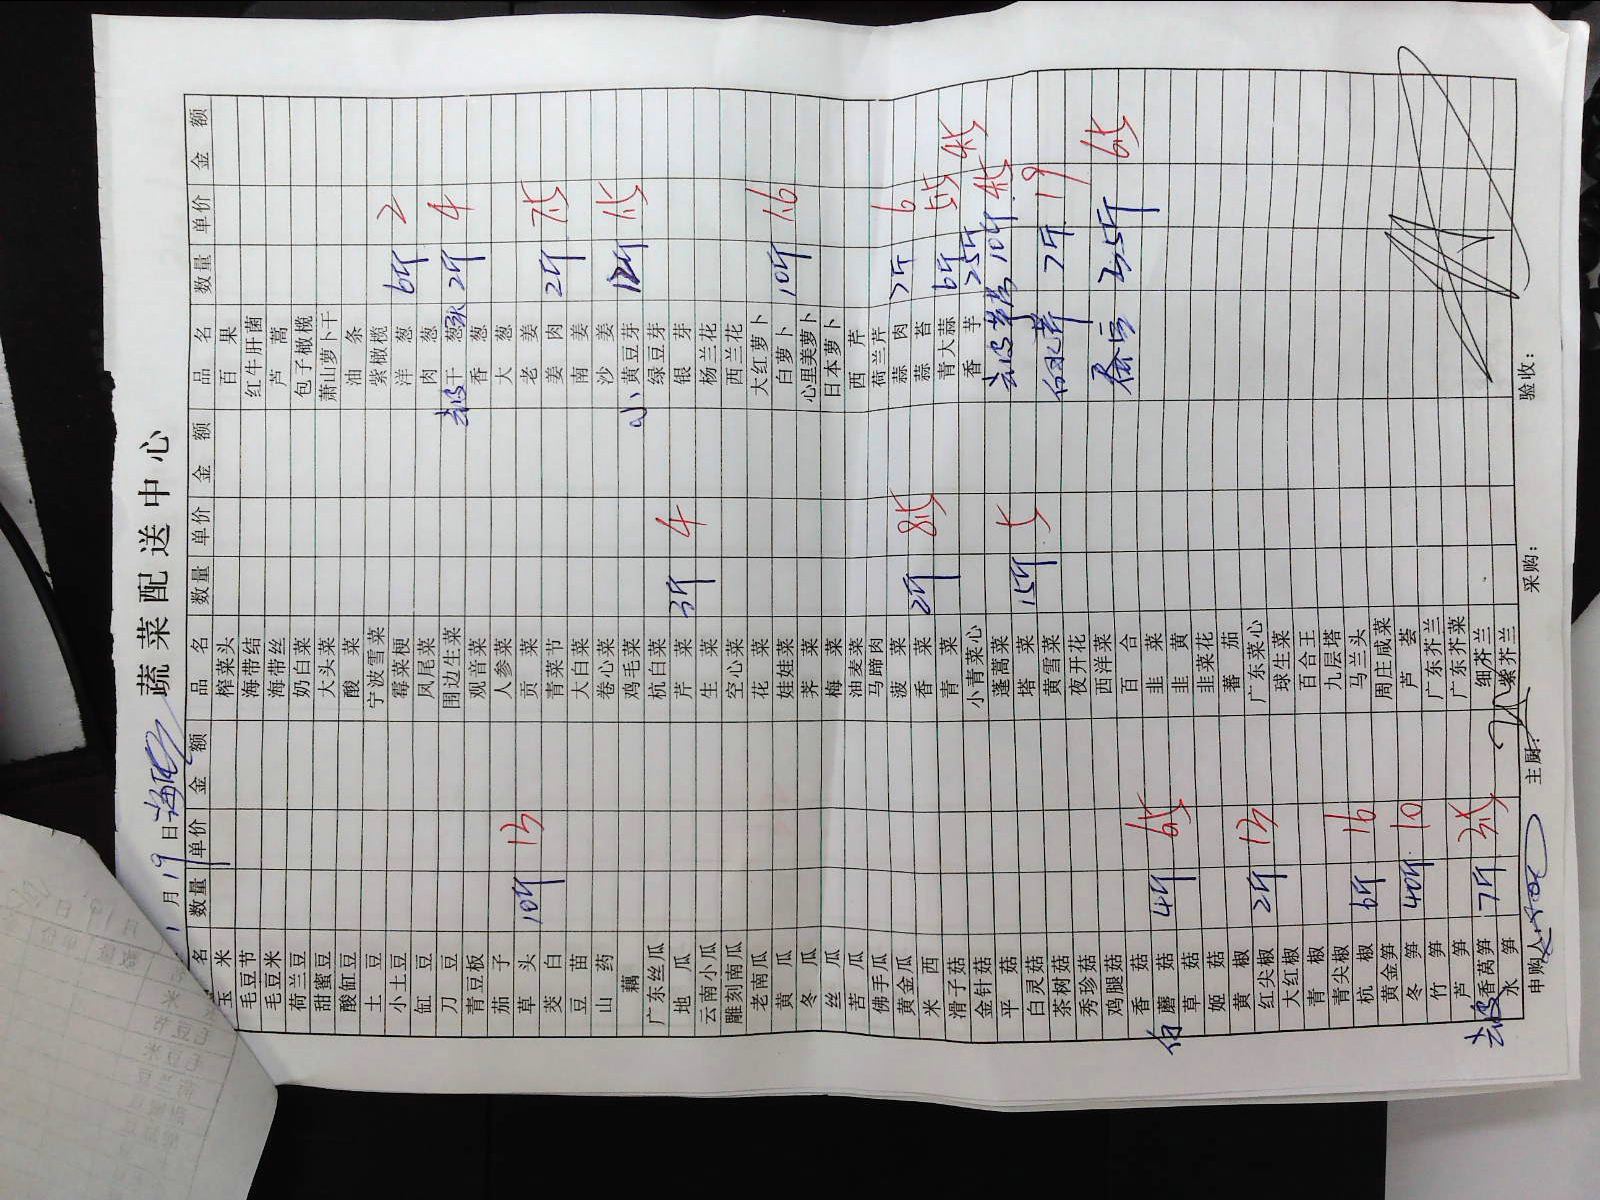 蔬菜配送中心
1月19日
名 数量 单价 金额 品名 数量 单价 金额 品名 数量 单价 金额
玉米 榨菜头 百果
毛豆节 海带结 红牛肝菌
毛豆米 海带丝 芦蒿
荷兰豆 奶白菜 包子橄榄
甜蜜豆 大头菜 萧山萝卜干
酸豇豆 酸菜 油条
土豆 宁波雪菜 紫橄榄
小土豆 霉菜梗 洋葱 6斤 2
豇豆 凤尾菜 肉葱
刀豆 围边生菜 去皮干葱 2斤 4
青豆板 观音菜 香葱
茄子 人参菜 大葱
草头 10斤 13 贡菜 老姜 2斤 7.5
茭白 青菜节 肉姜
豆苗 大白菜 南姜
山药 卷心菜 沙姜
藕 鸡毛菜 小黄豆芽 12斤 1.5
广东丝瓜 杭白菜 绿豆芽
地瓜 芹菜 3斤 4 银芽
云南小瓜 生菜 杨兰花
雕刻南瓜 空心菜 西兰花
老南瓜 花菜 大红萝卜
黄瓜 娃娃菜 白萝卜 10斤 1.6
冬瓜 荠菜 心里美萝卜
丝瓜 梅菜 日本萝卜
苦瓜 油麦菜 西芹
佛手瓜 马蹄肉 荷兰芹
黄金瓜 菠菜 蒜肉 7斤 6
米西 香菜 2斤 8.5 蒜苔
滑子菇 青菜 青大蒜 6斤 5.5
金针菇 小青菜心 香芋 25斤 4.5
平菇 蓬蒿菜 10斤 4.5
白灵菇 塔菜 15斤 5
茶树菇 黄雪菜 7斤 19
秀珍菇 夜开花
鸡腿菇 西洋菜 35斤 6.5
香菇 百合
白蘑菇 4斤 6.5 韭菜
草菇 韭黄
姬菇 韭菜花
黄椒 蕃茄
红尖椒 2斤 13 广东菜心
大红椒 球生菜
青椒 百合王
青尖椒 九层塔
杭椒 6斤 16 马兰头
黄金笋 周庄咸菜
冬笋 40斤 10 芦荟
竹笋 广东芥兰
芦笋 广东芥菜
去皮香莴笋 7斤 3.5 细芥兰
水笋 紫芥兰
申购人: 主厨: 采购: 验收: